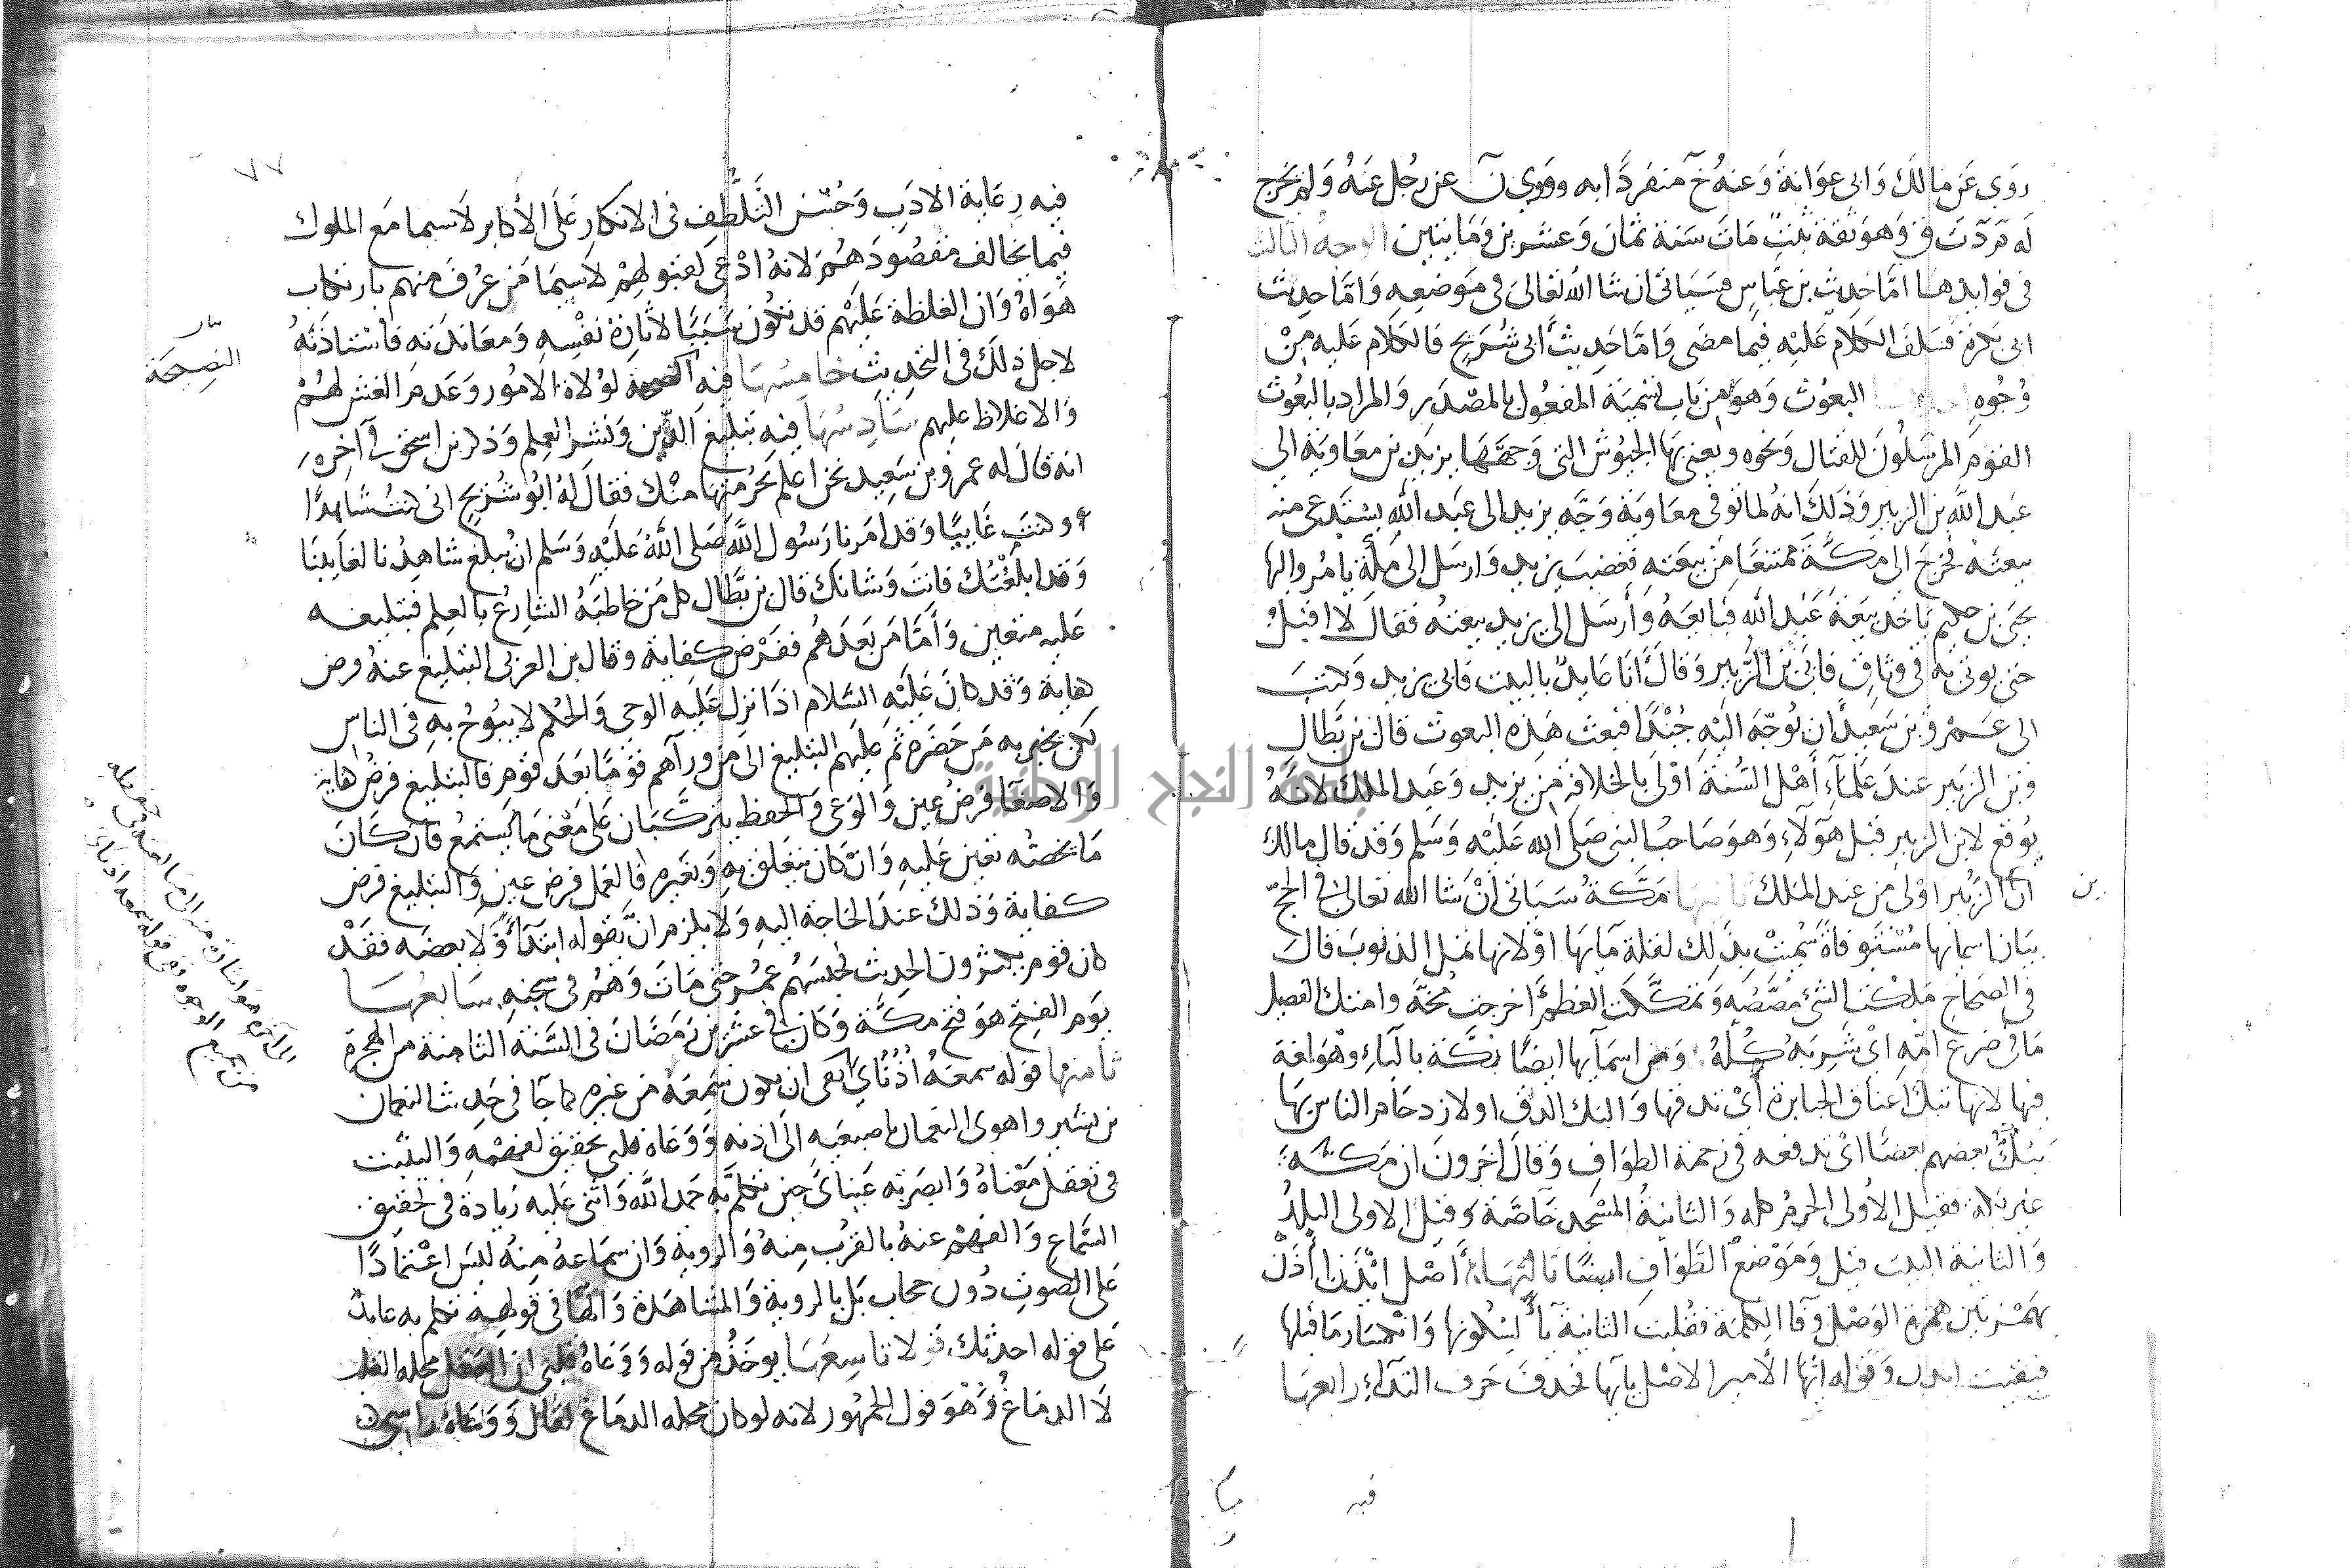 روى عن مالك وابى عوانة وعنه خ منفردا به وروى ن عن رجل عنه ولم يخرج
له م د ت ق وهو ثقة ثبت مات سنة ثمان وعشرين ومايتين الوجه الثالث
فى فوايدها اما حديث بن عباس فسياتى ان شا الله تعالى فى موضعه واما حديث
ابى بكرة فسلف الكلام عليه فيما مضى واما حديث ابى شريح فالكلام عليه من
وجوه البعوث وهو من باب تسمية المفعول بالمصدر والمراد بالبعوث
القوم المرسلون للقتال ونحوه ويعنى بها الجيوش التى وجهها يزيد بن معاوية الى
عبد الله بن الزبير وذلك انه لما توفى معاوية وجه يزيد الى عبد الله يستدعى منه
بيعته فخرج الى مكة ممتنعا من بيعته فغضب يزيد وارسل الى مكة يامر واليها
يحيى بن حكيم ياخذ بيعة عبد الله فبايعه وأرسل الى يزيد ببيعته فقال لا اقبل
حتى يوتى به فى وثاق فابى بن الزبير وقال أنا عايذ بالبيت فابى يزيد وكتب
الى عمرو بن سعيد ان يوجه اليه جندا فبعث هذه البعوث قال بن بطال
وبن الزبير عند علماء أهل السنة اولى بالخلافة من يزيد وعبد الملك لانه
بويع لابن الزبير قبل هؤلاء وهو صاحب النبى صلى الله عليه وسلم وقد قال مالك
ان الزبير اولى من عبد الملك ثانيها مكة سياتى ان شا الله تعالى فى الحج
بن
بيان اسمايها مستوفاة سميت بذلك لقلة مآيها اولانها تمك الذنوب قال
فى الصحاح مككت الشئ مصصته وتمككت العظم أخرجت مخه وامتك الفصيل
ما فى ضرع امه اى شربه كله ومن اسمآيها ايضا بكة بالباء وهو لغة
فيها لانها تبك اعناق الجبابرة أى تدقها والبك الدق اولازدحام الناس بها
يبك بعضهم بعضا اى يدفعه فى زحمة الطواف وقال آخرون ان مكة
غير بكة فقيل الأولى الحرم كله والثانية المسجد خاصة وقيل الاولى البلد
والثانية البيت قيل وموضع الطواف ايضا ثالثها أصل ايذن أأذن
بهمزتين همزة الوصل وفا الكلمة فقلبت الثانية يأ لسكونها وانكسار ما قبلها
فبقيت ايذن وقوله ايها الأمير الاصل يآيها فحذف حرف النداء رابعها
فيه
٧٧
فيه رعاية الادب وحسن التلطف فى الانكار على الأكابر لاسيما مع الملوك
فيما يخالف مقصودهم لانه ادعى لقبولهم لاسيما من عرف منهم بارتكاب
هواه وان الغلظة عليهم قد تكون سببا لاثارة نفسه ومعاندته فأستاذنه
لاجل ذلك فى التحديث خامسها فيه النصيحة لولاة الامور وعدم الغش لهم
النصيحة
والاغلاظ عليهم سادسها فيه تبليغ الدين ونشر العلم وذكر بن اسحق فى آخره
انه قال له عمرو بن سعيد نحن اعلم بحرمتها منك فقال له ابو شريح انى كنت شاهدا
وكنت غايبا وقد امرنا رسول الله صلى الله عليه وسلم ان يبلغ شاهدنا لغايبنا
وقد ابلغتك فانت وشانك قال بن بطال كل من خاطبه الشارع بالعلم فتبليغه
عليه متعين وأما من بعدهم ففرض كفاية وقال بن العربى التبليغ عنه فرض
كفاية وقد كان عليه السلام اذا نزل عليه الوحى والحكم لا يبوح به فى الناس
لكن يخبر به من حضره ثم عليهم التبليغ الى من ورآهم قوما بعد قوم فالتبليغ فرض كفاية
والاصغا فرض عين والوعى والحفظ يتركبان على معنى ما يستمع فان كان
ما يخصه تعين عليه وان كان يتعلق به وبغيره فالعمل فرض عين والتبليغ فرض
كفاية وذلك عند الحاجة اليه ولا يلزم ان يقوله ابتدأ ولا بعضه فقد
كان قوم يكثرون الحديث فحبسهم عمر حتى مات وهم فى سجنه سابعها
يوم الفتح هو فتح مكة وكان فى عشرين رمضان فى السنة الثامنة من الهجرة
ثامنها قوله سمعه أذناى نفى ان يكون سمعه من غيره كما جآ فى حديث النعمان
بن بشير واهوى النعمان باصبعيه الى اذنه ووعاه قلبى تحقيق لفهمه والتثبت
فى تعقل معناه وابصرته عيناى حين تكلم به حمد الله واثنى عليه زيادة فى تحقيق
السماع والفهم عنه بالقرب منه والروية وان سماعه منه ليس اعتمادا
على الصوت دون حجاب بل بالروية والمشاهدة والهآ فى قوله تكلم به عايد
على قوله احدثك قولا تاسعها يوخذ من قوله ووعاه قلبى ان العقل محله القلب
لا الدماغ وهو قول الجمهور لانه لو كان محله الدماغ لقال ووعاه راسى